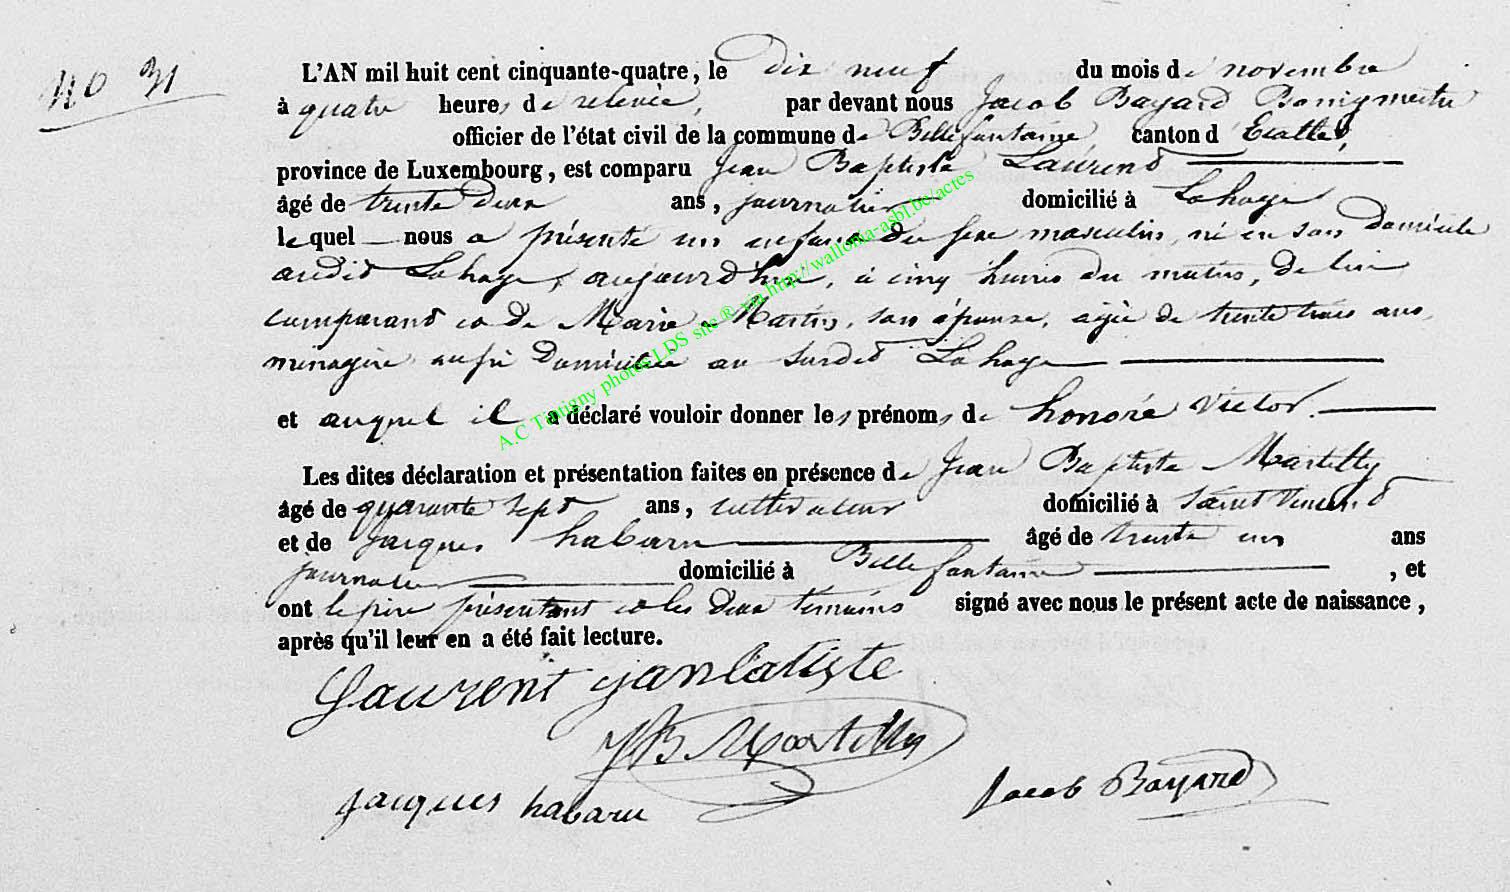 No 31
L'AN mil huit cent cinquante-quatre, le dix neuf du mois de novembre
à quatre heures de relevée, par devant nous Jacob Bayard Bourgmestre
officier de l'état civil de la commune de Bellefontaine, canton d'Etalle,
province de Luxembourg, est comparu Jean Baptiste Laurent
âgé de trente deux ans, journalier domicilié à Lahage
lequel nous a présenté un enfant du sexe masculin, né en son domicile
audit Lahage, aujourd'hui, à cinq heures du matin, de lui
comparant et de Marie Martin, son épouse, agée de trente trois ans,
ménagère aussi domiciliée au susdit Lahage
et auquel il a déclaré vouloir donner les prénoms de honoré victor.
Les dites déclaration et présentation faites en présence de Jean Baptiste Martilly
âgé de quarante sept ans, cultivateur domicilié à Saint Vincent
et de Jacques habaru âgé de trente un ans
journalier domicilié à Bellefontaine, et
ont le père présentant et les deux témoins signé avec nous le présent acte de naissance,
après qu'il leur en a été fait lecture.
Laurent janbatiste
JB Martilly
jacques habaru Jacob Bayard
A.C Tintigny photos LDS site ® via http://wallonia-asbl.be/actes